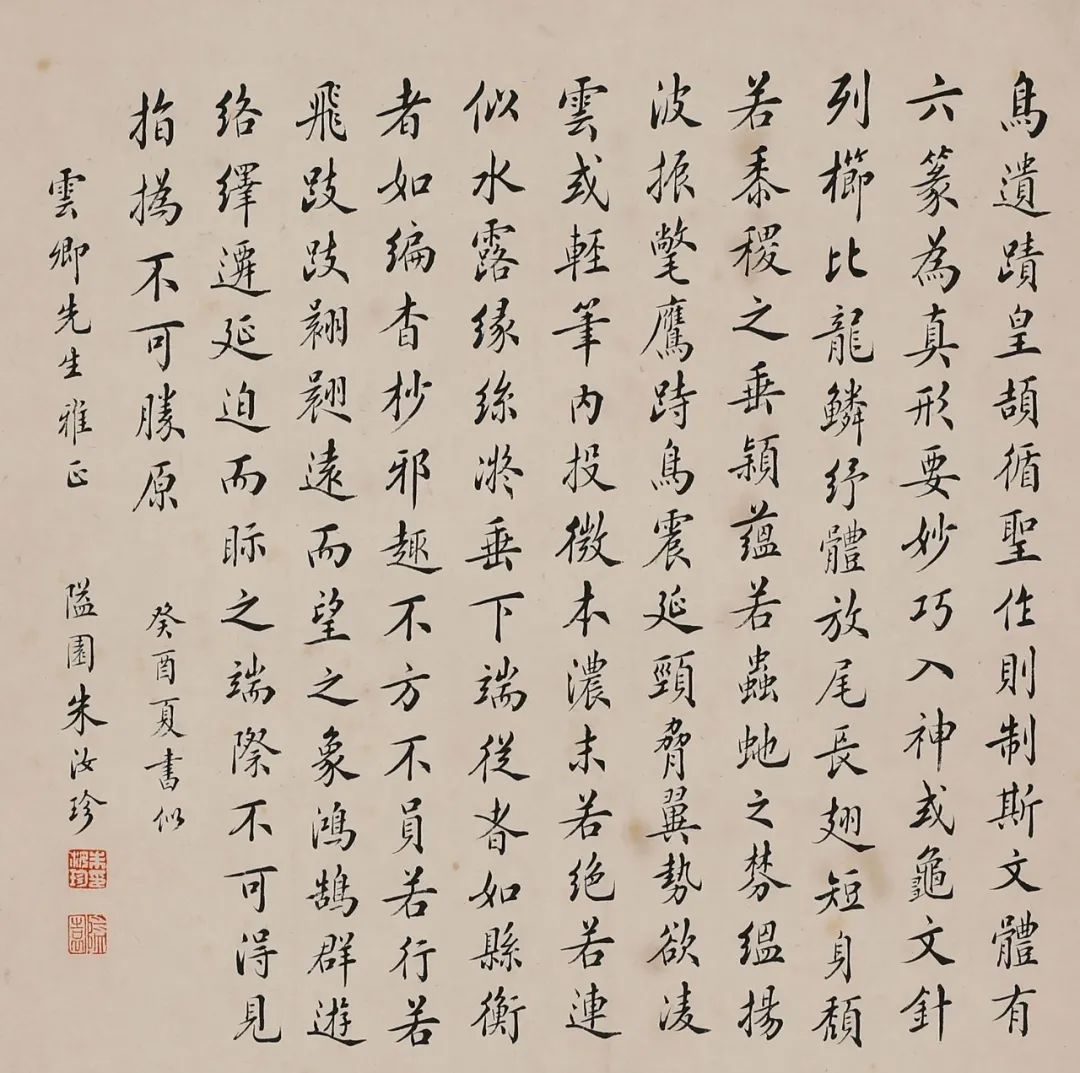 鳥遺蹟皇頡循聖作則制斯文體有
六篆為真形要妙巧入神或龜文針
列櫛比龍鱗紓體放尾長翅短身頹
若黍稷之垂穎蘊若蟲虵之棼緼揚
波振撆鷹跱鳥震延頸脅翼勢欲凌
雲或輕筆內投微本濃末若絕若連
似水露緣絲凝垂下端從者如縣衡
者如編杳杪邪趣不方不員若行若
飛跂跂翾翾遠而望之象鴻鵠群遊
絡繹遷延迫而眎之端際不可得見
指撝不可勝原
癸酉夏書似
雲卿先生雅正
隘園朱汝珍
朱汝珍
隘園